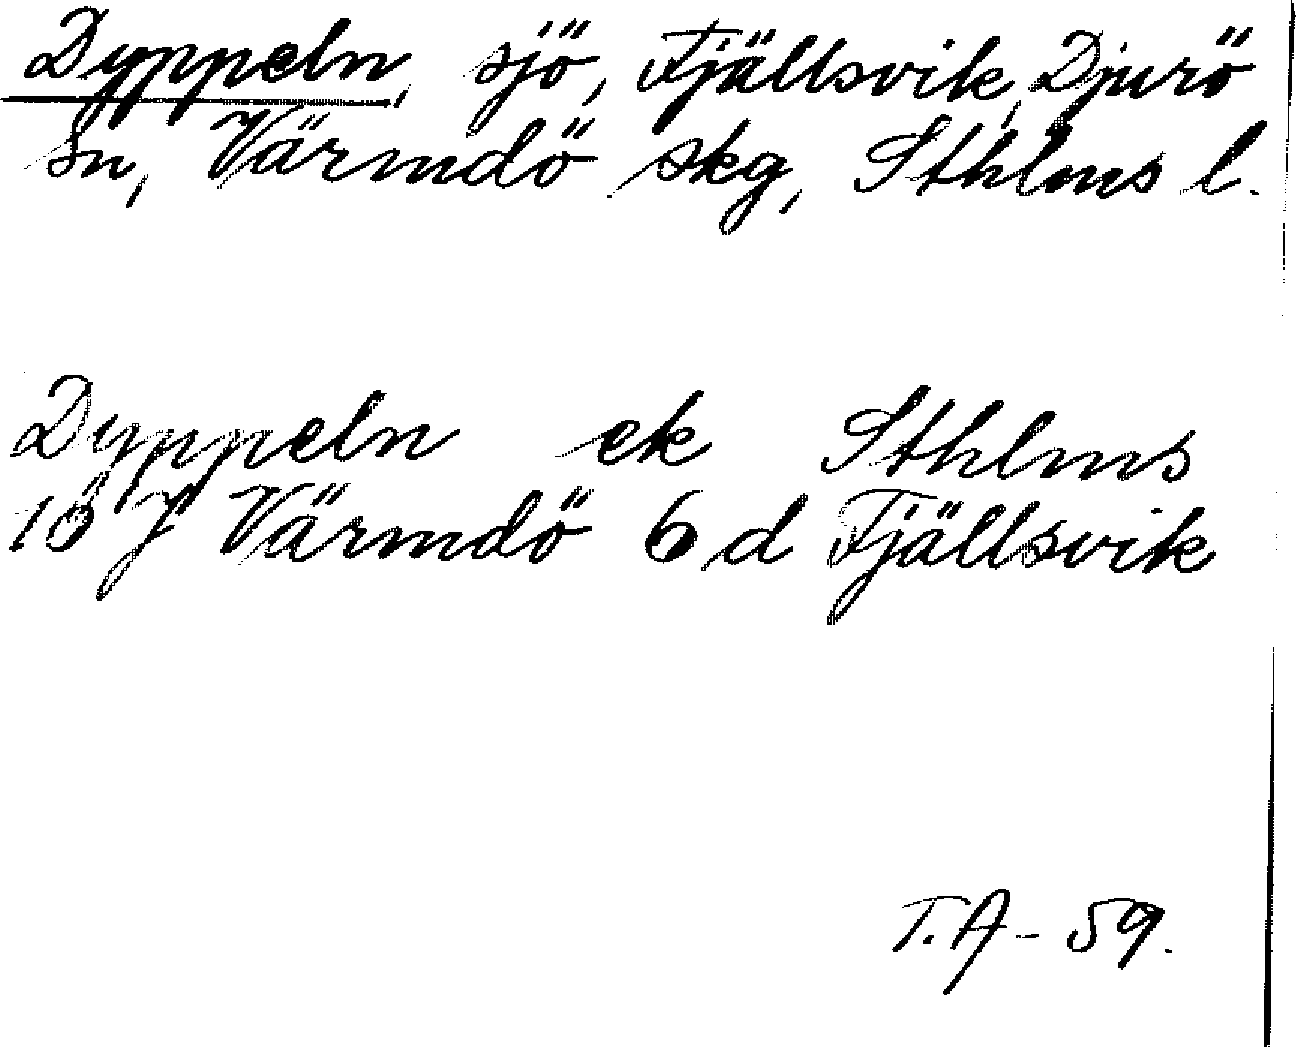 Dyppeln, sjö, Fjällsvik, Djurö
sn, Värmdö skg, Sthlms l.
Dyppeln ek Sthlms
10 J Värmdö 6 d Fjällsvik
T.A - 59.